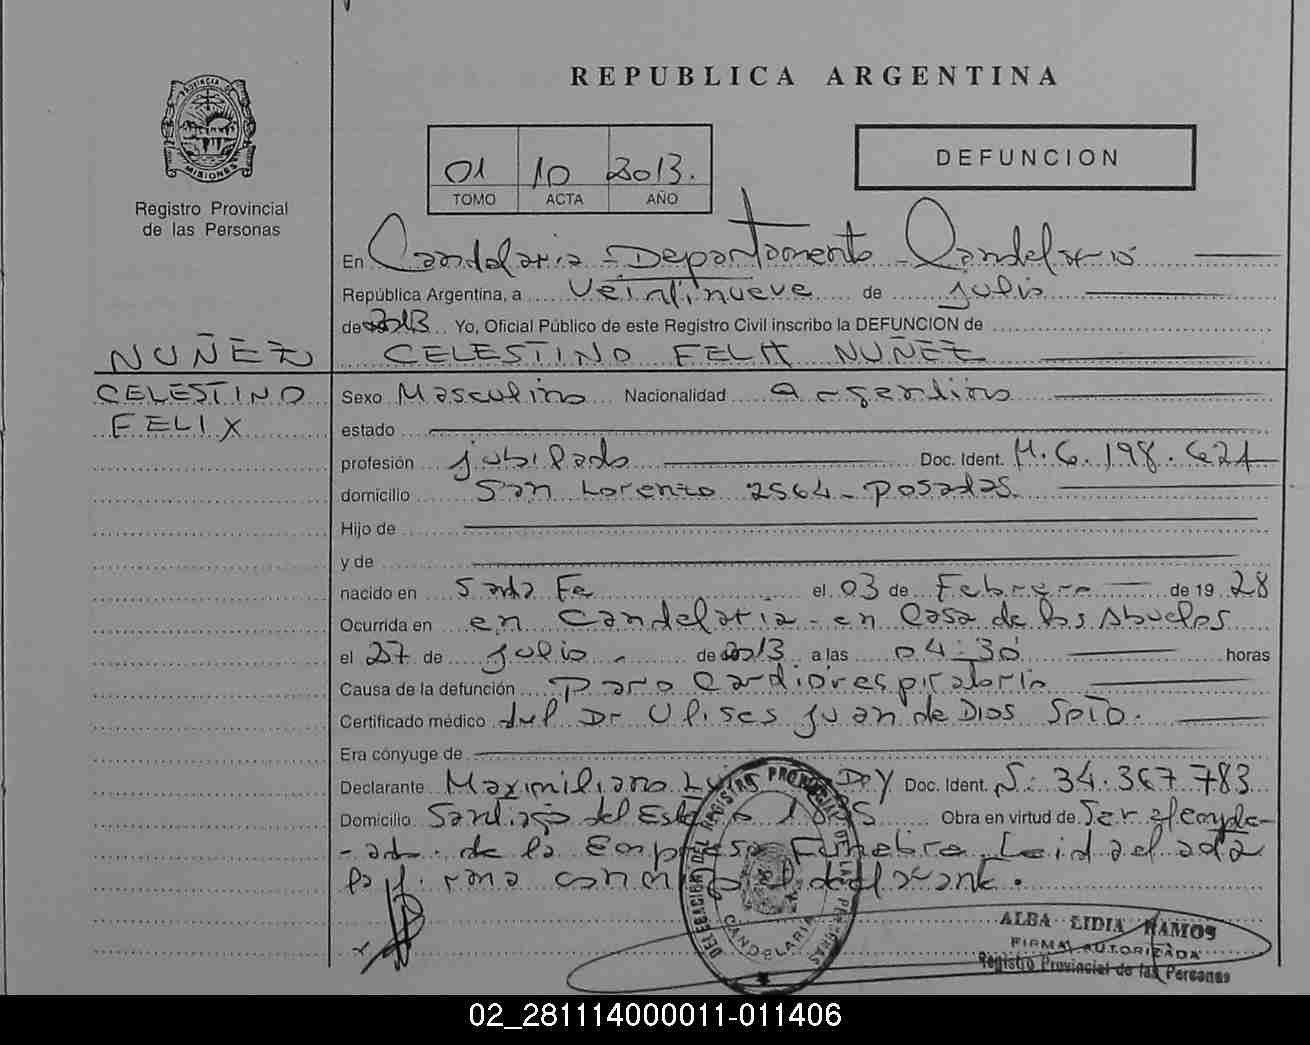 REPUBLICA ARGENTINA
PROVINCIA DE
MISIONES
Registro Provincial
de las Personas
01 10 2013.
TOMO ACTA AÑO
DEFUNCION
En Candelaria - Departamento - Candelaria
República Argentina, a veintinueve de julio
de 2013 Yo, Oficial Público de este Registro Civil inscribo la DEFUNCION de
NUÑEZ
CELESTINO FELIX NUÑEZ
CELESTINO
FELIX
Sexo Masculino Nacionalidad Argentino
estado
profesión jubilado Doc. Ident. M. 6.198.621
domicilio San Lorenzo 2564 - Posadas.
Hijo de
y de
nacido en Santa Fe el 03 de Febrero de 19 28
Ocurrida en en Candelaria - en Casa de los Abuelos
el 27 de julio de 2013 a las 04:30 horas
Causa de la defunción paro Cardiorespiratorio
Certificado médico del Dr Ulises Juan de Dios
Era cónyuge de
Declarante Maximiliano Doc. Ident. 34.367.783
Domicilio Santiago del Estero Obra en virtud de Ser emplea-
-ado de la Empresa Funebre. Leida el acta
la firma conmigo el declarante.
DELEGACION DEL REGISTRO PROVINCIAL DE LAS PERSONAS
CANDELARIA
ALBA LIDIA RAMOS
FIRMA AUTORIZADA
Registro Provincial de las Personas
02_281114000011-011406